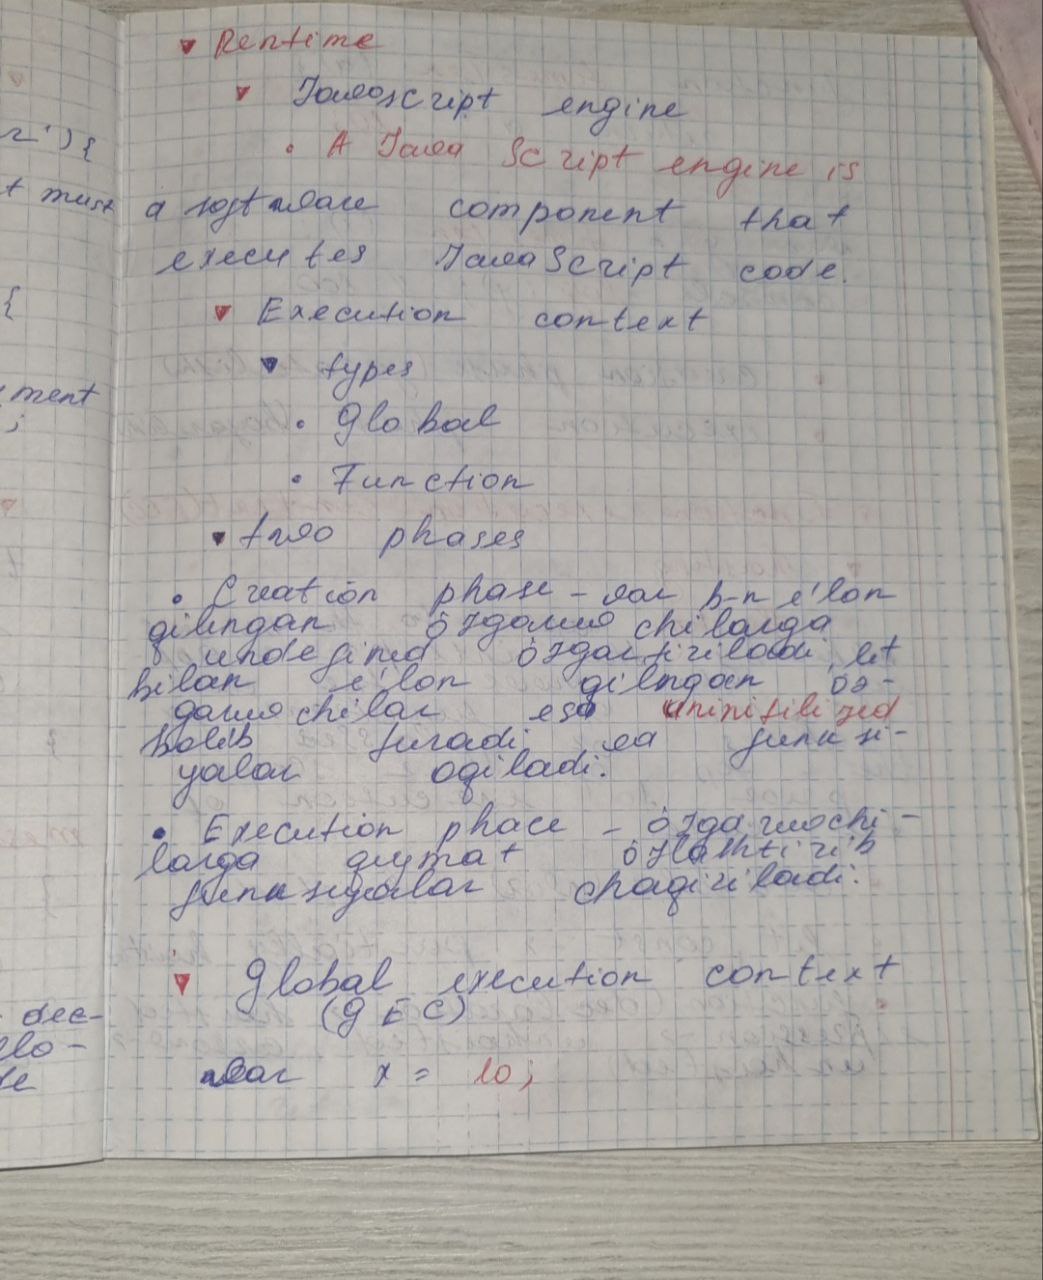 Runtime
Javascript engine
• A JavaScript engine is
a software component that
executes JavaScript code.
Execution context
types
• Global
• Function
two phases
• Creation phase - var b-n e'lon
qilingan o'zgaruvchilarga
undefined o'zgartiriladi, let
bilan e'lon qilngan oz-
garuvchilar esa uninitilized
bolib turadi va funksi-
yalar oqiladi.
• Execution phace - ózgaruvchi-
larga qiymat ózlashtirib
funksiyalar chaqiriladi.
Global execution context
(GEC)
var x = 10;
r'){
t must
{
ment
;
dec-
elo-